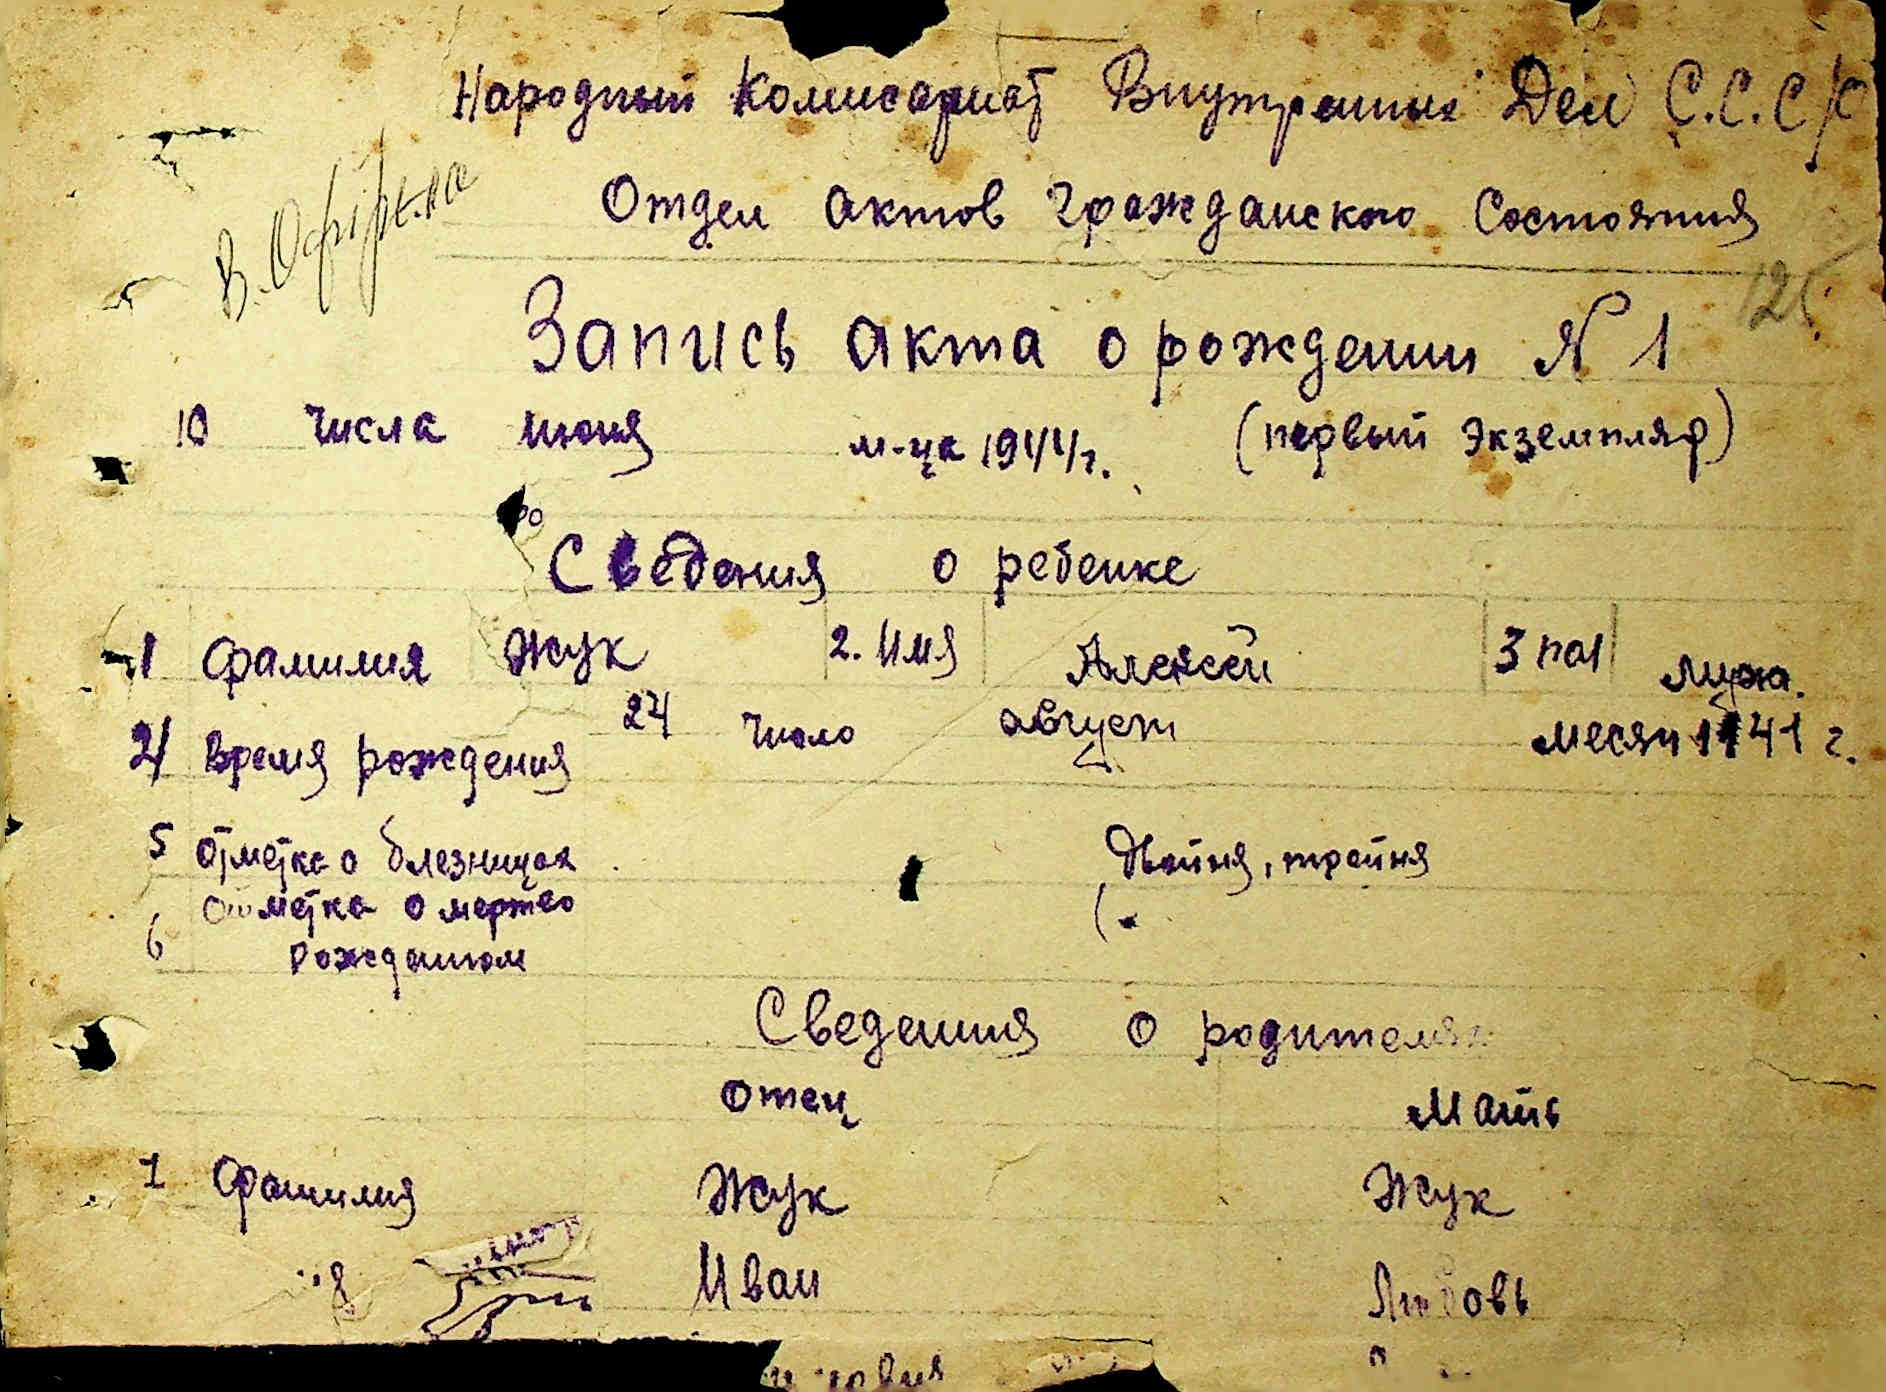 Народный Комисариат Внутренных Дел С.С.С.Р
Отдел актов гражданского Состояния
125
Запись акта о рождении № 1
10 числа июня м-ца 1944г. (первый экземпляр)
Сведения о ребенке
1 Фамилия Жук 2. Имя Алексей 3 пол Мужа.
2/ время рождения 24 число август месяц 1941 г.
5 Отметка о блезницах Двойня, тройня
6 Отметка о мертво
рожданном
Сведения о родителях
Отец Мать
1 Фамилия Жук Жук
Иван Любовь